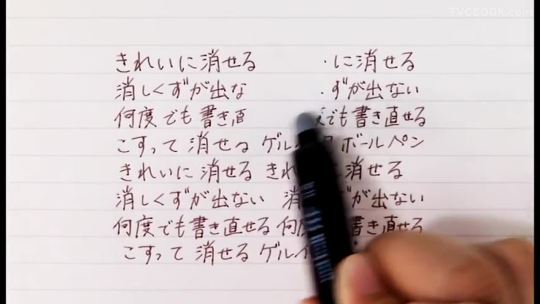 TVCBOOK.com
きれいに消せる に消せる
消しくずが出な ずが出ない
何度でも書き直 度でも書き直せる
こすって 消せる ゲルイ ボールペン
きれいに 消せる き に消せる
消しくずが出ない 消 ずが出ない
何度でも書き直せる 何度 書き直せる
こすって 消せる ゲルイ